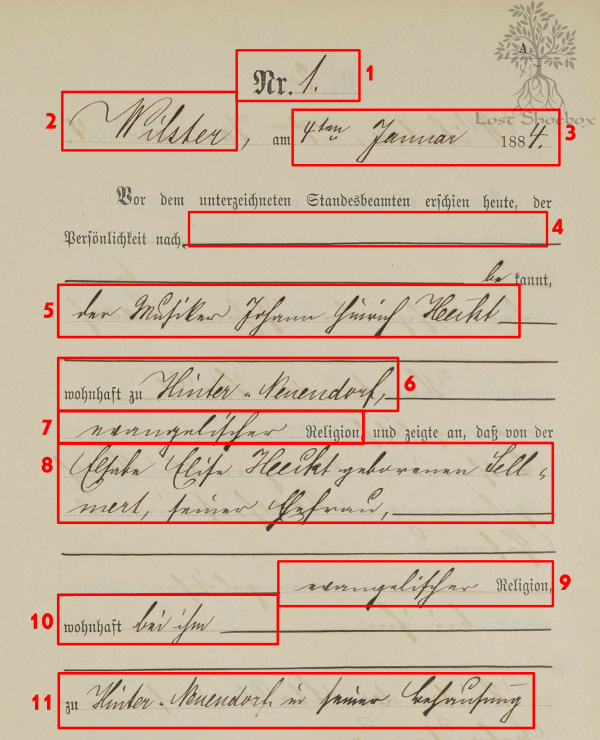 A.
Lost Shoebox
Nr. 1. 1
2 Wilster, am 4ten Januar 1884. 3
Vor dem unterzeichneten Standesbeamten erschien heute, der
Persönlichkeit nach 4
be kannt,
5 der Musiker Johann Hinrich Heckt
wohnhaft zu Hinter-Neuendorf, 6
7 evangelischer Religion, und zeigte an, daß von der
8 Elsabe Elise Heckt geborenen Sell-
mert, seiner Ehefrau,
evangelischer Religion, 9
10 wohnhaft bei ihm
11 zu Hinter-Neuendorf in seiner Behausung